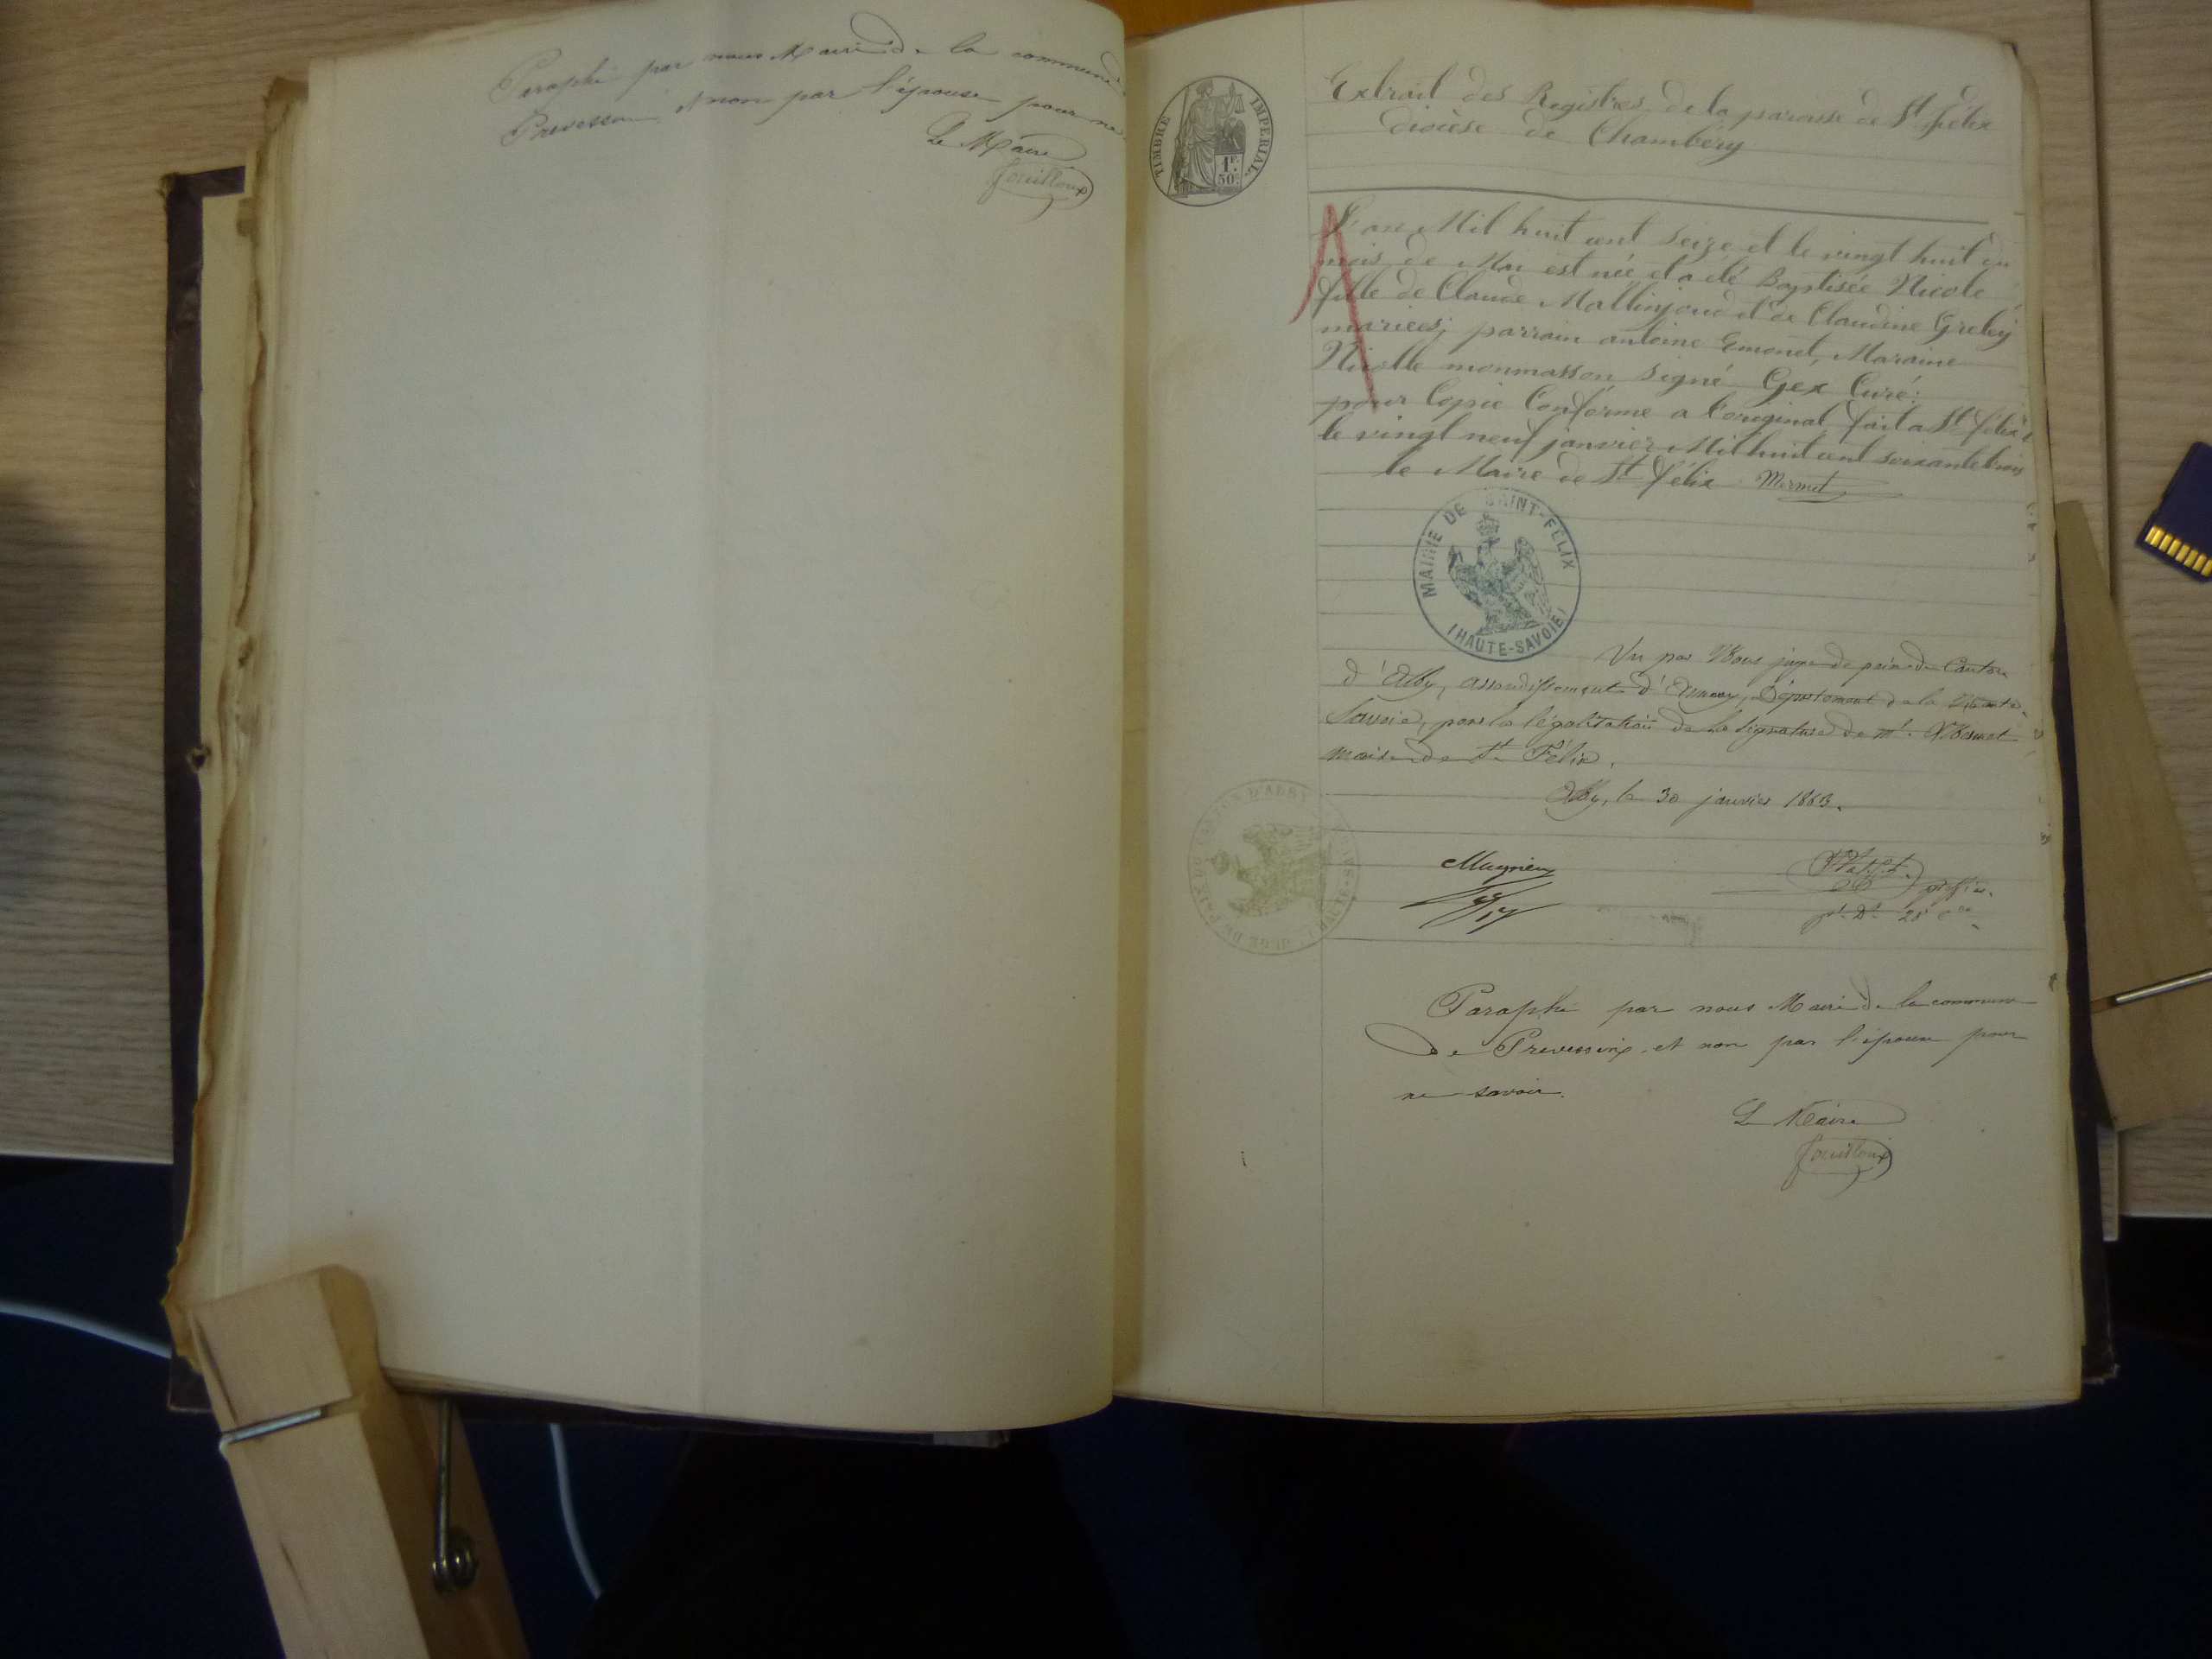 Paraphé par nous Maire de la commune
Prevessin et non par l'épouse pour ne
Le Maire
Fouilloux
TIMBRE IMPERIAL
1F. 50c.
Extrait des Registres de la paroisse de St félix
diocèse de Chambéry
L'an Mil huit cent Seize et le vingt huit du
mois de Mai est née et a été Baptisée Nicole
fille de Claude Mallinjoud et de Claudine
mariés; parrain antoine Emonet, Maraine
Nicolle monmasson Signé Gex Curé:
pour Copie Conforme a l'original fait a St félix
le vingt neuf janvier Mil huit cent soixante trois
le Maire de St félix Mermet
MAIRIE DE SAINT-FELIX
(HAUTE-SAVOIE)
Vu par Nous juge de paix du Canton
d'Alby, arrondissement d'Annecy, Département de la Haute
Savoie, pour la légalisation de la signature de Mr. Mermet
maire de St Félix.
Alby, le 30 janvier 1863.
JUGE DE PAIX DU CANTON D'ALBY
Magnien
greffier
Paraphé par nous Maire de la commune
de Prevessin, et non par l'épouse pour
ne savoir.
Le Maire
Fouilloux